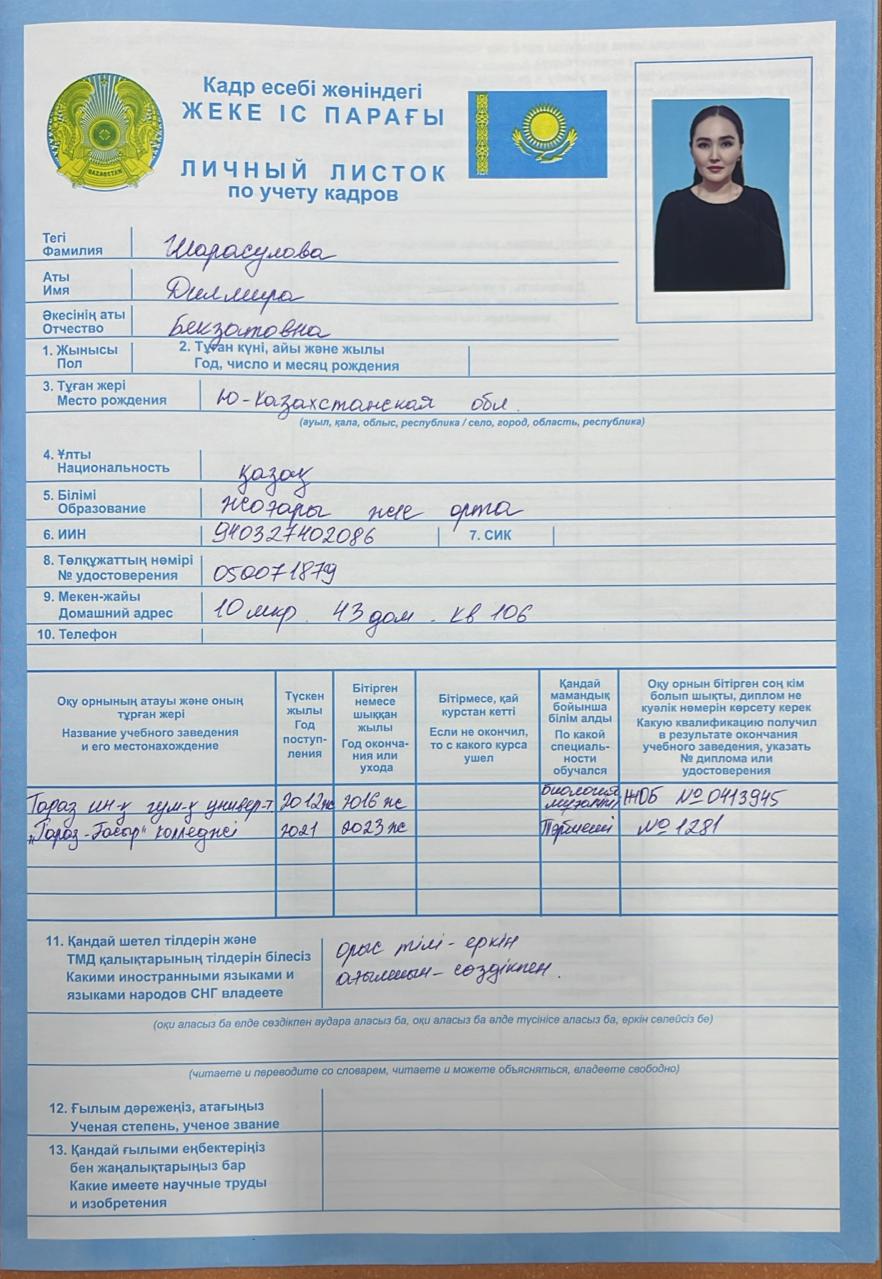 Кадр есебі жөніндегі
ЖЕКЕ ІС ПАРАҒЫ
ЛИЧНЫЙ ЛИСТОК
по учету кадров
ҚАЗАҚСТАН
Тегі
Фамилия
Шарасулова
Аты
Имя
Дилмира
Әкесінің аты
Отчество
Бекзатовна
1. Жынысы
Пол
2. Туған күні, айы және жылы
Год, число и месяц рождения
3. Туған жері
Место рождения
Ю-Казахстанская обл.
(ауыл, қала, облыс, республика / село, город, область, республика)
4. Ұлты
Национальность
қазақ
5. Білімі
Образование
жоғары және орта
6. ИИН
940327402086
7. СИК
8. Төлқұжаттың нөмірі
№ удостоверения
050071879
9. Мекен-жайы
Домашний адрес
10 мкр. 43 дом. кв 106
10. Телефон
Оқу орнының атауы және оның
тұрған жері
Название учебного заведения
и его местонахождение
Түскен
жылы
Год
поступ-
ления
Бітірген
немесе
шыққан
жылы
Год оконча-
ния или
ухода
Бітірмесе, қай
курстан кетті
Если не окончил,
то с какого курса
ушел
Қандай
мамандық
бойынша
білім алды
По какой
специаль-
ности
обучался
Оқу орнын бітірген соң кім
болып шықты, диплом не
куәлік номерін көрсету керек
Какую квалификацию получил
в результате окончания
учебного заведения, указать
№ диплома или
удостоверения
Тараз ин-қ гум-қ универ-т 2012ж 2016 ж Биология ЖОБ № 0413945
"Тараз-Ғасыр" колледжі 2021 2023 ж № 1281
11. Қандай шетел тілдерін және
ТМД қалықтарының тілдерін білесіз
Какими иностранными языками и
языками народов СНГ владеете
орыс тілі - еркін
ағылшын - сөздікпен.
(оқи аласыз ба әлде сөздікпен аудара аласыз ба, оқи аласыз ба әлде түсінісе аласыз ба, еркін сөлейсіз бе)
(читаете и переводите со словарем, читаете и можете объясняться, владеете свободно)
12. Ғылым дәрежеңіз, атағыңыз
Ученая степень, ученое звание
13. Қандай ғылыми еңбектеріңіз
бен жаңалықтарыңыз бар
Какие имеете научные труды
и изобретения